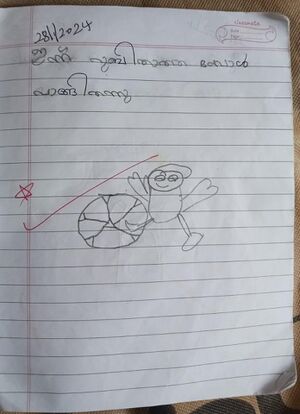 classmate
Date
Page
28/1/2024
ഇന്ന് ബോൾ
വാങ്ങിതന്നു